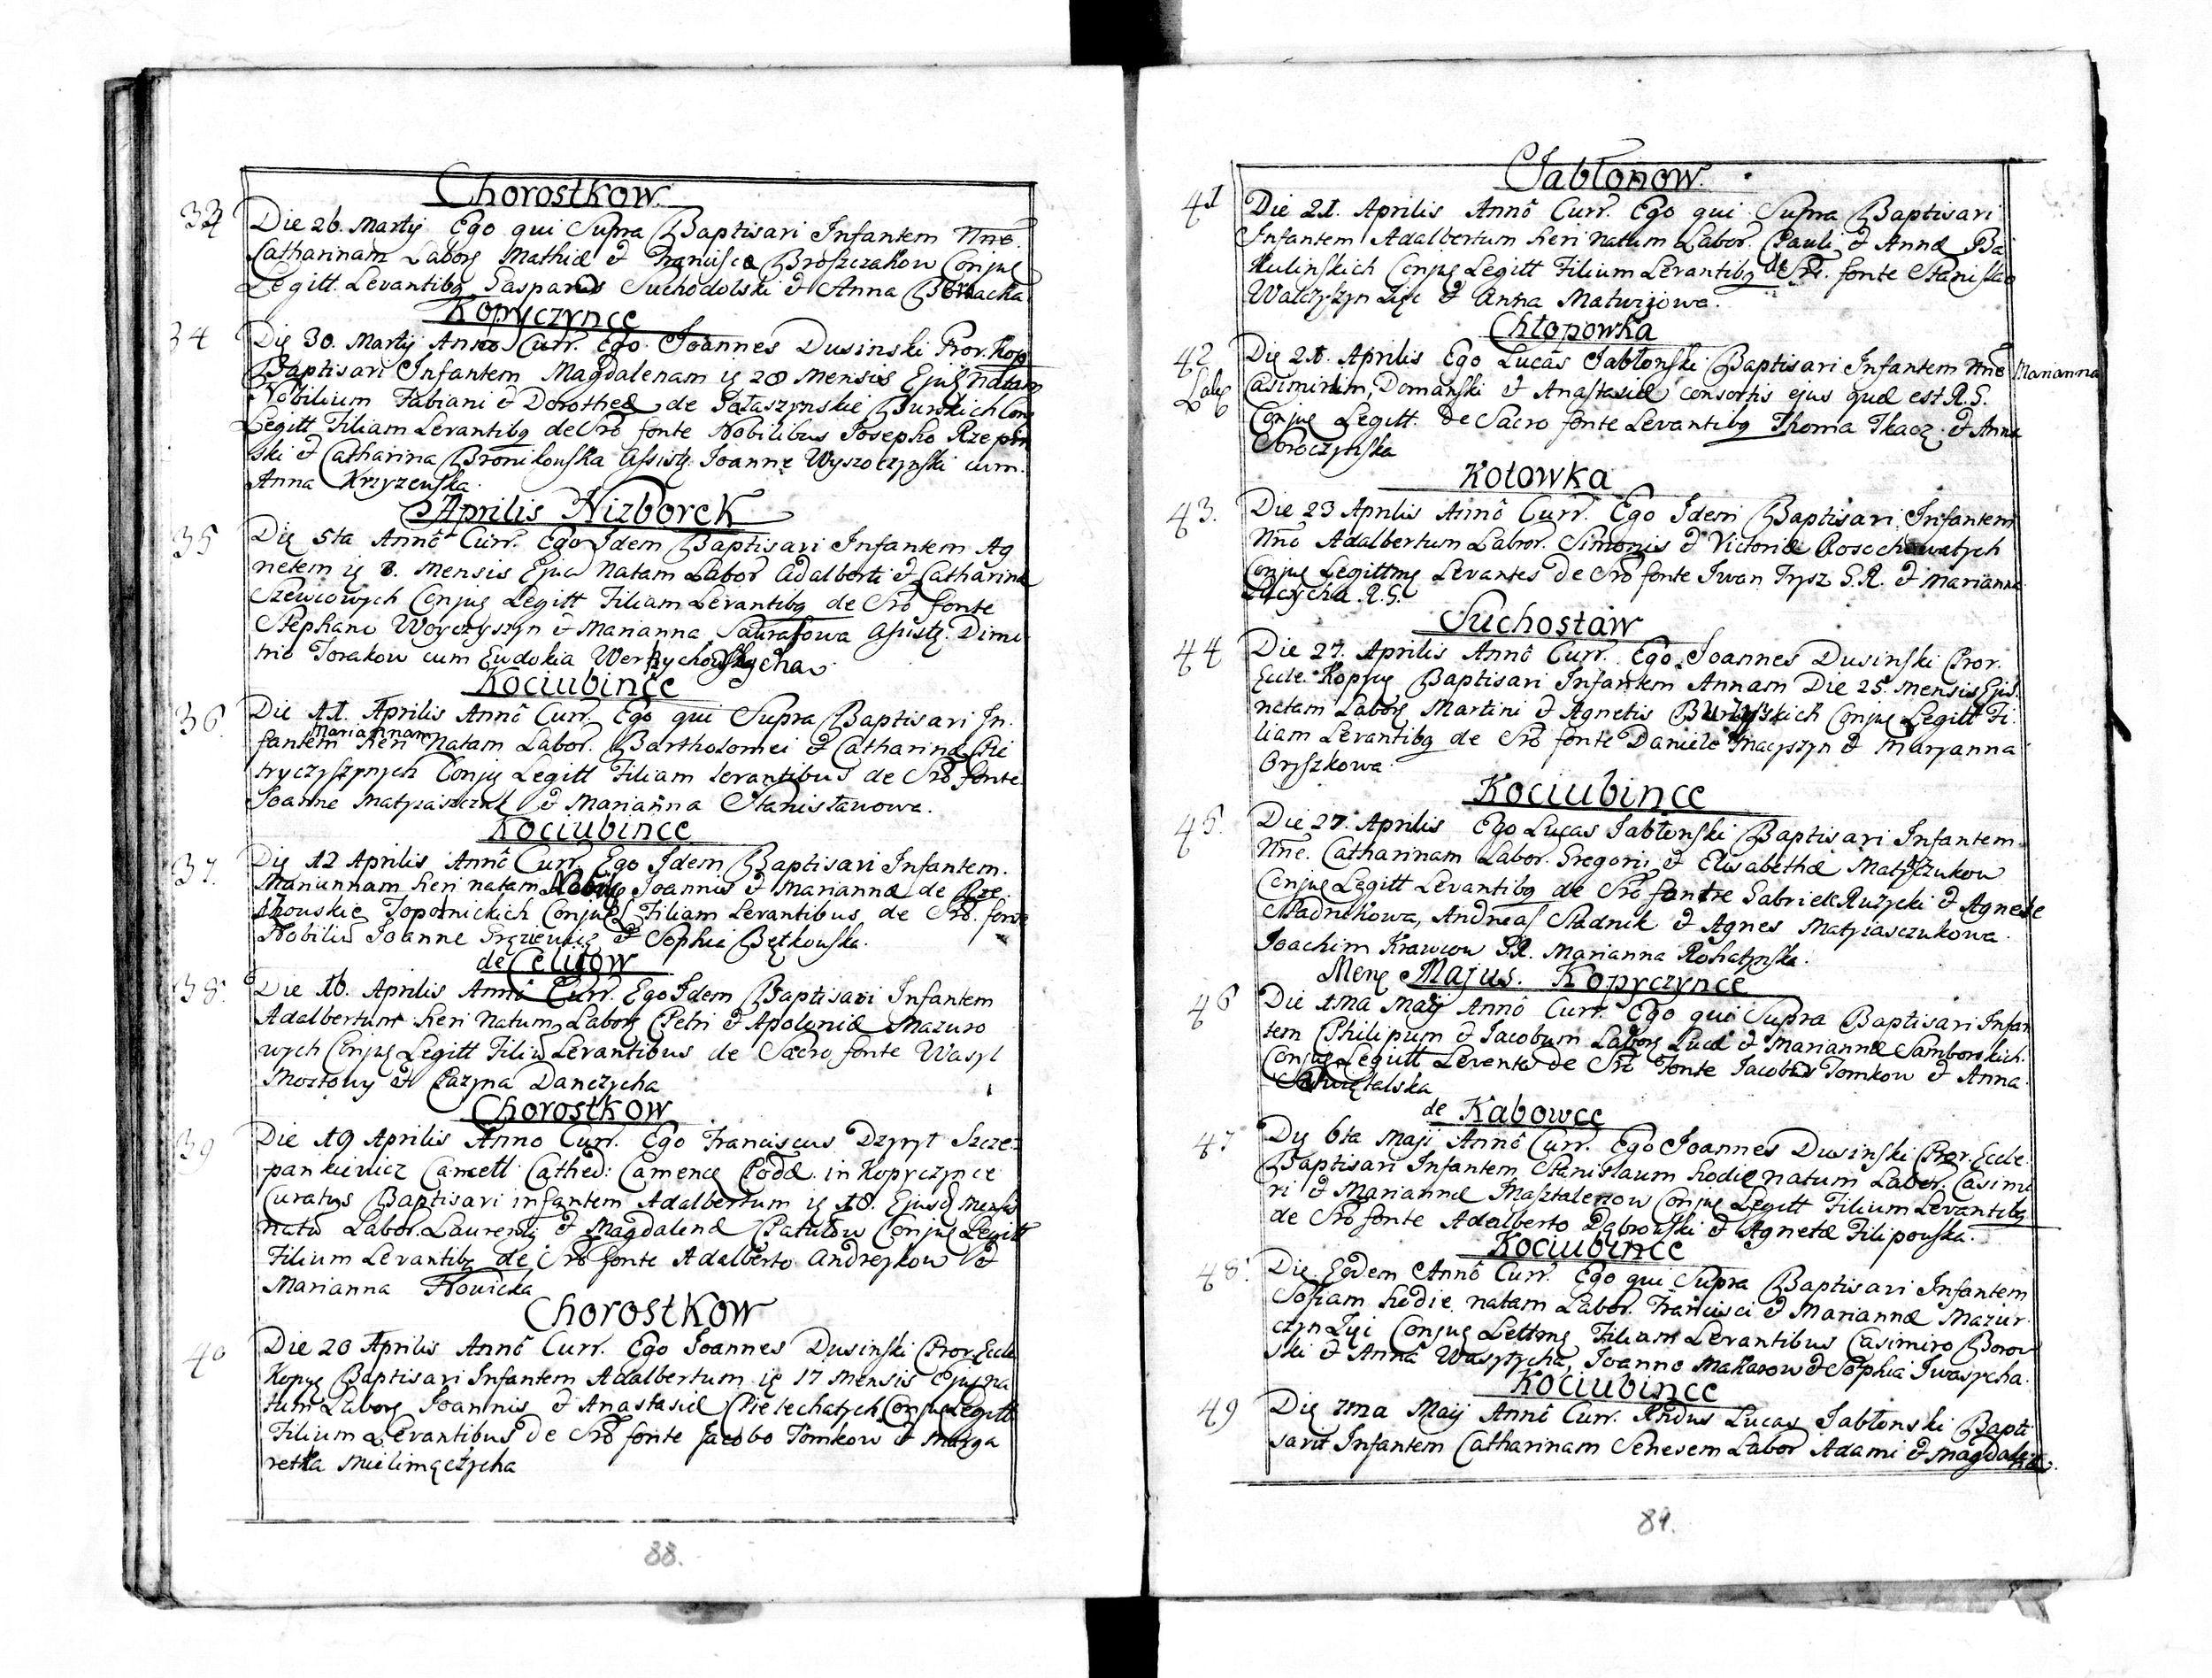 Chorostkow.
33 Die 26. Martij Ego qui Supra Baptisavi Infantem Nne.
Catharinam Labors Mathiæ & Francisca Broszczakow Conjug
Legitt. Levantibq Gasparus Suchodolski & Anna
Kopyczynce
34 Die 30. Martij Anno Curr. Ego Joannes Dusinski Pror. Kop
Baptisavi Infantem Magdalenam is 28 Mensis Ejus Natam
Nobilium Fabiani & Dorotheæ de Burskich Conj
Legitt Filiam Levantibq de Sro fonte Nobilibus Josepho Rzepin
ski & Catharina Bronikowska Assistt. Joanne Wyszoczynski cum.
Anna Krzyzewska.
Aprilis Nizborek
35 Die 5ta Annô Curr. Ego Idem Baptisavi Infantem Ag
netem is 3. Mensis Natam Labor Adalberti & Catharinæ
Szewcowych Conjug Legitt Filiam Levantibq de Sro fonte
Stephano Woyczyszyn & Marianna Assistt. Dimi
trio Torakow cum Eudokia
Kociubince
36. Die 11. Aprilis Annô Curr. Ego qui Supra Baptisavi In.
Mariannam
fantem heri Natam Labor. Bartholomei & Catharinæ Pie
tryczyszynych Conjug Legitt Filiam Levantibus de Sro fonte
Joanne Matyiaszczuk & Marianna Stanisławowa.
Kociubince
37. Die 12 Aprilis Annô Curr. Ego Idem Baptisavi Infantem.
Mariannam heri natam Nobily Joannis & Mariannæ de Rze
Topolnickich Conjug Filiam Levantibus de Sro. fonte
Nobiliu Joanne & Sophia Bętkowska.
de Celijow
38. Die 16. Aprilis Annô Curr. Ego Idem Baptisavi Infantem
Adalbertum heri Natum Labors Petri & Apoloniæ Mazuro
wych Conjug Legitt Filiu Levantibus de Sacro fonte Wasyl
Mostowy & Pazyna Danczycha
Chorostkow
39 Die 19 Aprilis Anno Curr. Ego Franciscus Dzyryt Szcze=
pankiewicz Cancell Cathed: Camenc Podæ. in Kopyczynce
Curatus Baptisavi infantem Adalbertum is 18. Ejusq Mensis
natu Labor. Laurenty & Magdalenæ Patulow Conjug Legitt
Filium Levantibq de Sro fonte Adalberto Andreykow &
Marianna
Chorostkow
40 Die 20 Aprilis Annô Curr. Ego Joannes Dusinski Pror. Eccle
Kopyc Baptisavi Infantem Adalbertum is 17 Mensis Ejus na
tum Labors Joannis & Anastasiæ Pielechatych Conjug Legitt
Filium Levantibus de Sro fonte Jacobo Tomkow & Marga
retta
88.
Jabłonow.
41 Die 21. Aprilis Annô Curr. Ego qui Supra Baptisavi
Infantem Adalbertum heri natum Labor. Pauli & Annæ Ba
kulinskich Conjug Legitt Filium Levantibq de Sro. fonte Stanislao
Walczyszyn & Anna Matwijowa.
Chłopowka
42 Die 21. Aprilis Ego Lucas Jabłonski Baptisavi Infantem Nne Marianna
Casimirum, Domanski & Anastasiæ consortis ejus quæ est R. G.
Conjug Legitt. de Sacro fonte Levantibq Thoma Tkacz & Anna
Soroczynska
Kotowka
43. Die 23 Aprilis Annô Curr. Ego Idem Baptisavi Infantem
Nne Adalbertum Labor. Simonis & Victoriæ Rosochowatych
Conjug Legittmg Levantes de Sro fonte Iwan Frysz G. R. & Marianna
R. G.
Suchostaw
44 Die 27. Aprilis Annô Curr. Ego Joannes Dusinski Pror.
Eccle. Kopyc Baptisavi Infantem Annam Die 25. Mensis Ejus.
natam Labors Martini & Agnetis Conjug Legitt Fi
liam Levantibq de Sro fonte Daniele & Maryanna
Gryszkowa.
Kociubince
45. Die 27. Aprilis Ego Lucas Jabłonski Baptisavi Infantem
Nne. Catharinam Labor. Gregorii & Elisabethæ Matyszczukow
Conjug Legitt Levantibq de Sro fontre Gabriele Ruzycki & Agnete
Sładnikowa, Andreas Sładnik & Agnes Matyiasczukowa.
Joachim Krawcow G. R. Marianna Rohatynska.
Mens Majus. Kopyczynce
46 Die 1ma Maij Annô Curr. Ego qui Supra Baptisavi Infan
tem Philipum & Jacobum Labors Lucæ & Mariannæ Samborskich.
Conjug Legitt Levantes de Sro Fonte Jacobus Tomkow & Anna
de Kabowce
47 Die 6ta Maji Annô Curr. Ego Joannes Dusinski Pror. Eccle.
Baptisavi Infantem Stanislaum hodie natum Labor. Casimi
ri & Mariannæ Masztalerzow Conjug Legitt Filium Levantibq
de Sro fonte Adalberto Dąbrowski & Agnetæ Filipowska.
Kociubince
48. Die Eodem Annô Curr. Ego qui Supra Baptisavi Infantem
Sofiam hodie natam Labor. Francisci & Mariannæ Mazur
czyn Conjug Lettmg Filiam Levantibus Casimiro Borow
ski & Anna Wasylycha, Joanne Makarow & Sophia Iwasycha.
Kociubince
49 Die 7ma Maij Annô Curr. Rndus Lucas Jabłonski Bapti
savit Infantem Catharinam Senesem Labor Adami & Magdalenæ
89.